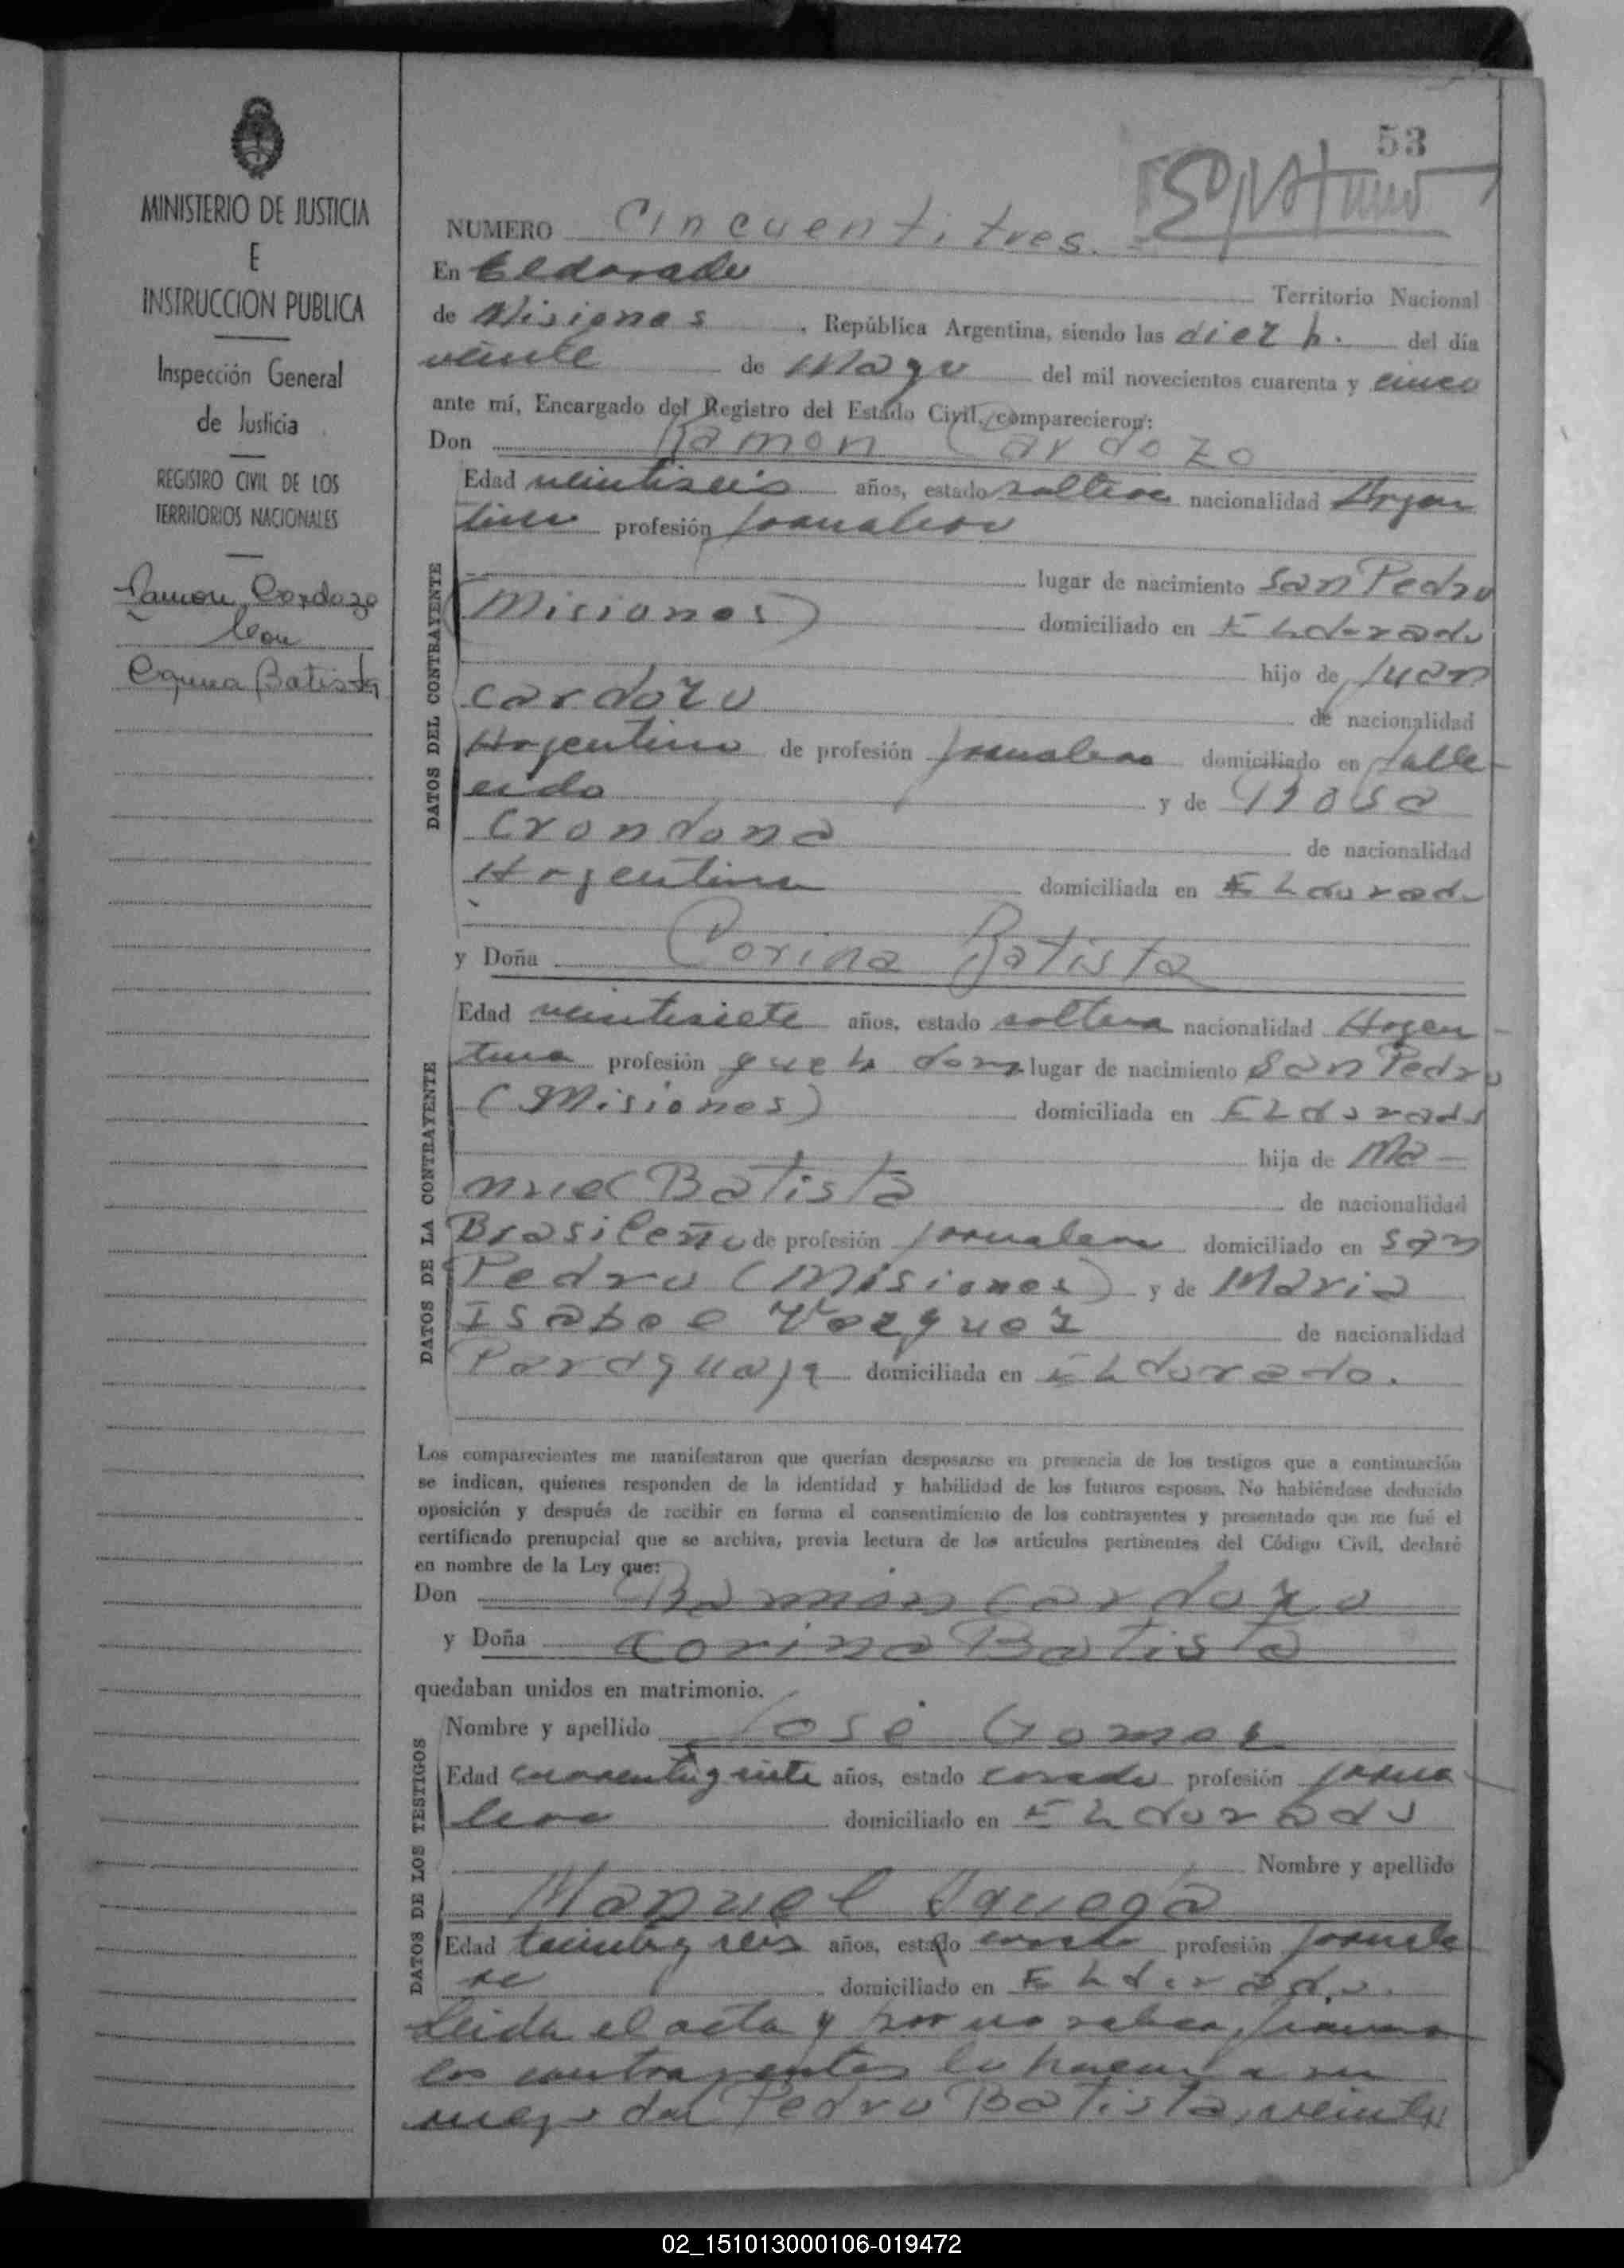 53
MINISTERIO DE JUSTICIA
E
INSTRUCCION PUBLICA
Inspección General
de Justicia
REGISTRO CIVIL DE LOS
TERRITORIOS NACIONALES
Ramon Cardozo
con
Corina Batista
NUMERO Cincuentitres.
En Eldorado Territorio Nacional
de Misiones, República Argentina, siendo las diez h. del día
veinte de Mayo del mil novecientos cuarenta y cinco
ante mí, Encargado del Registro del Estado Civil, comparecieron:
Don Ramon Cardozo
Edad veintiseis años, estado soltero nacionalidad Argen
tino profesión jornalero
DATOS DEL CONTRAYENTE
lugar de nacimiento San Pedro
(Misiones) domiciliado en Eldorado
hijo de Juan
Cardozo de nacionalidad
Argentino de profesión jornalero domiciliado en falle-
cido y de Rosa
Crondona de nacionalidad
Argentina domiciliada en Eldorado
y Doña Corina Batista
Edad veintisiete años, estado soltera nacionalidad Argen-
tina profesión queh dom lugar de nacimiento San Pedro
(Misiones) domiciliada en Eldorado
DATOS DE LA CONTRAYENTE
hija de Ma-
nuel Batista de nacionalidad
Brasileño de profesión jornalero domiciliado en San
Pedro (Misiones) y de Maria
Isabel Vazquez de nacionalidad
Paraguaya domiciliada en Eldorado.
Los comparecientes me manifestaron que querían desposarse en presencia de los testigos que a continuación
se indican, quienes responden de la identidad y habilidad de los futuros esposos. No habiéndose deducido
oposición y después de recibir en forma el consentimiento de los contrayentes y presentado que me fué el
certificado prenupcial que se archiva, previa lectura de los artículos pertinentes del Código Civil, declaré
en nombre de la Ley que:
Don Ramón Cardozo
y Doña Corina Batista
quedaban unidos en matrimonio.
DATOS DE LOS TESTIGOS
Nombre y apellido José Gomez
Edad cuarenta y siete años, estado casado profesión jorna
lero domiciliado en Eldorado
Nombre y apellido
Manuel
Edad treinta y seis años, estado casado profesión jornale
ro domiciliado en Eldorado.
Leida el acta y por no saber firmar
los contrayentes lo hacen a su
ruego don Pedro Batista, veinte
02_151013000106-019472